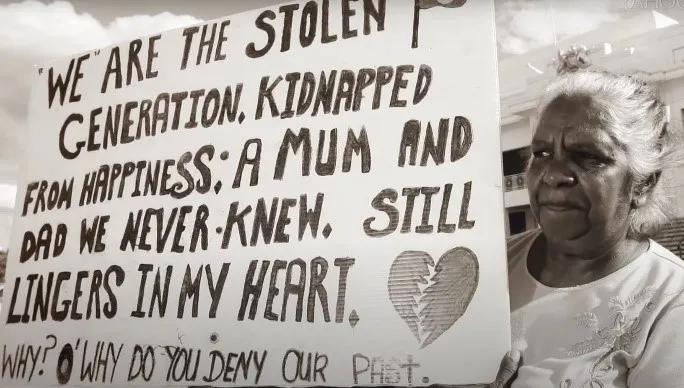 "WE" ARE THE STOLEN
GENERATION. KIDNAPPED
FROM HAPPINESS; A MUM AND
DAD WE NEVER-KNEW. STILL
LINGERS IN MY HEART.
WHY? O'WHY DO YOU DENY OUR PAST.